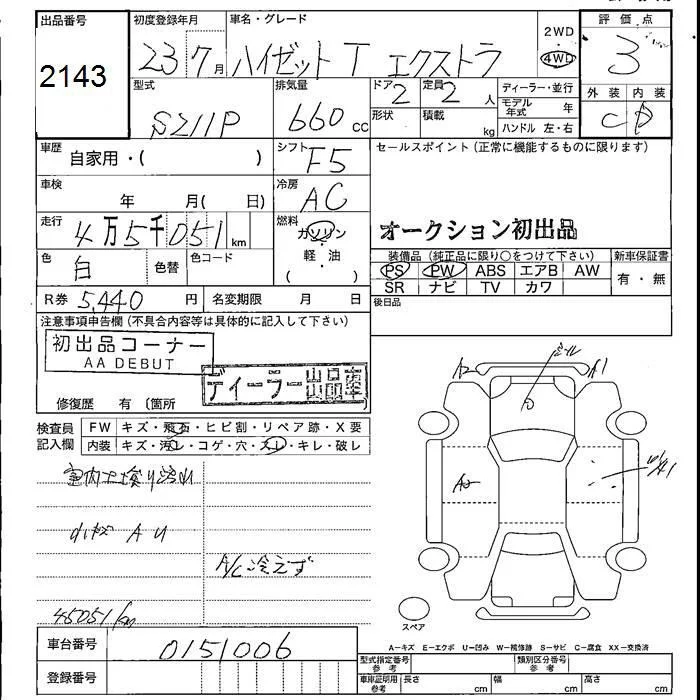 出品番号 初度登録年月 車名・グレード 2WD 評価点
2143 23 7月 ハイゼット T エクストラ 4WD 3
型式 排気量 ドア 2 定員 2人 ディーラー・並行 外装 内装
S211P 660cc 形状 積載 kg モデル年式 年 C D
ハンドル 左・右
車歴 自家用・( ) シフト F5 セールスポイント(正常に機能するものに限ります)
車検 年 月( 日) 冷房 AC
走行 4万5千051km 燃料 ガソリン・軽油・( ) オークション初出品
色 白 色替 色コード 装備品(純正品に限り○をつけて下さい) 新車保証書
PS PW ABS エアB AW 有・無
SR ナビ TV カワ
R券 5,440円 名変期限 月 日 後日品
注意事項申告欄(不具合内容等は具体的に記入して下さい)
初出品コーナー
AA DEBUT
ディーラー出品車
修復歴 有〔箇所
検査員記入欄 FW キズ・飛石・ヒビ割・リペア跡・X要
内装 キズ・汚レ・コゲ・穴・スレ・キレ・破レ
A2 A1
A2
小キズ A U
A/C 冷えず
45051km
スペア
A-キズ E-エクボ U-凹み W-補修跡 S-サビ C-腐食 XX-交換済
車台番号 0151006 型式指定番号 参考 類別区分番号 参考
登録番号 車庫証明用 参考 長さ cm 幅 cm 高さ cm